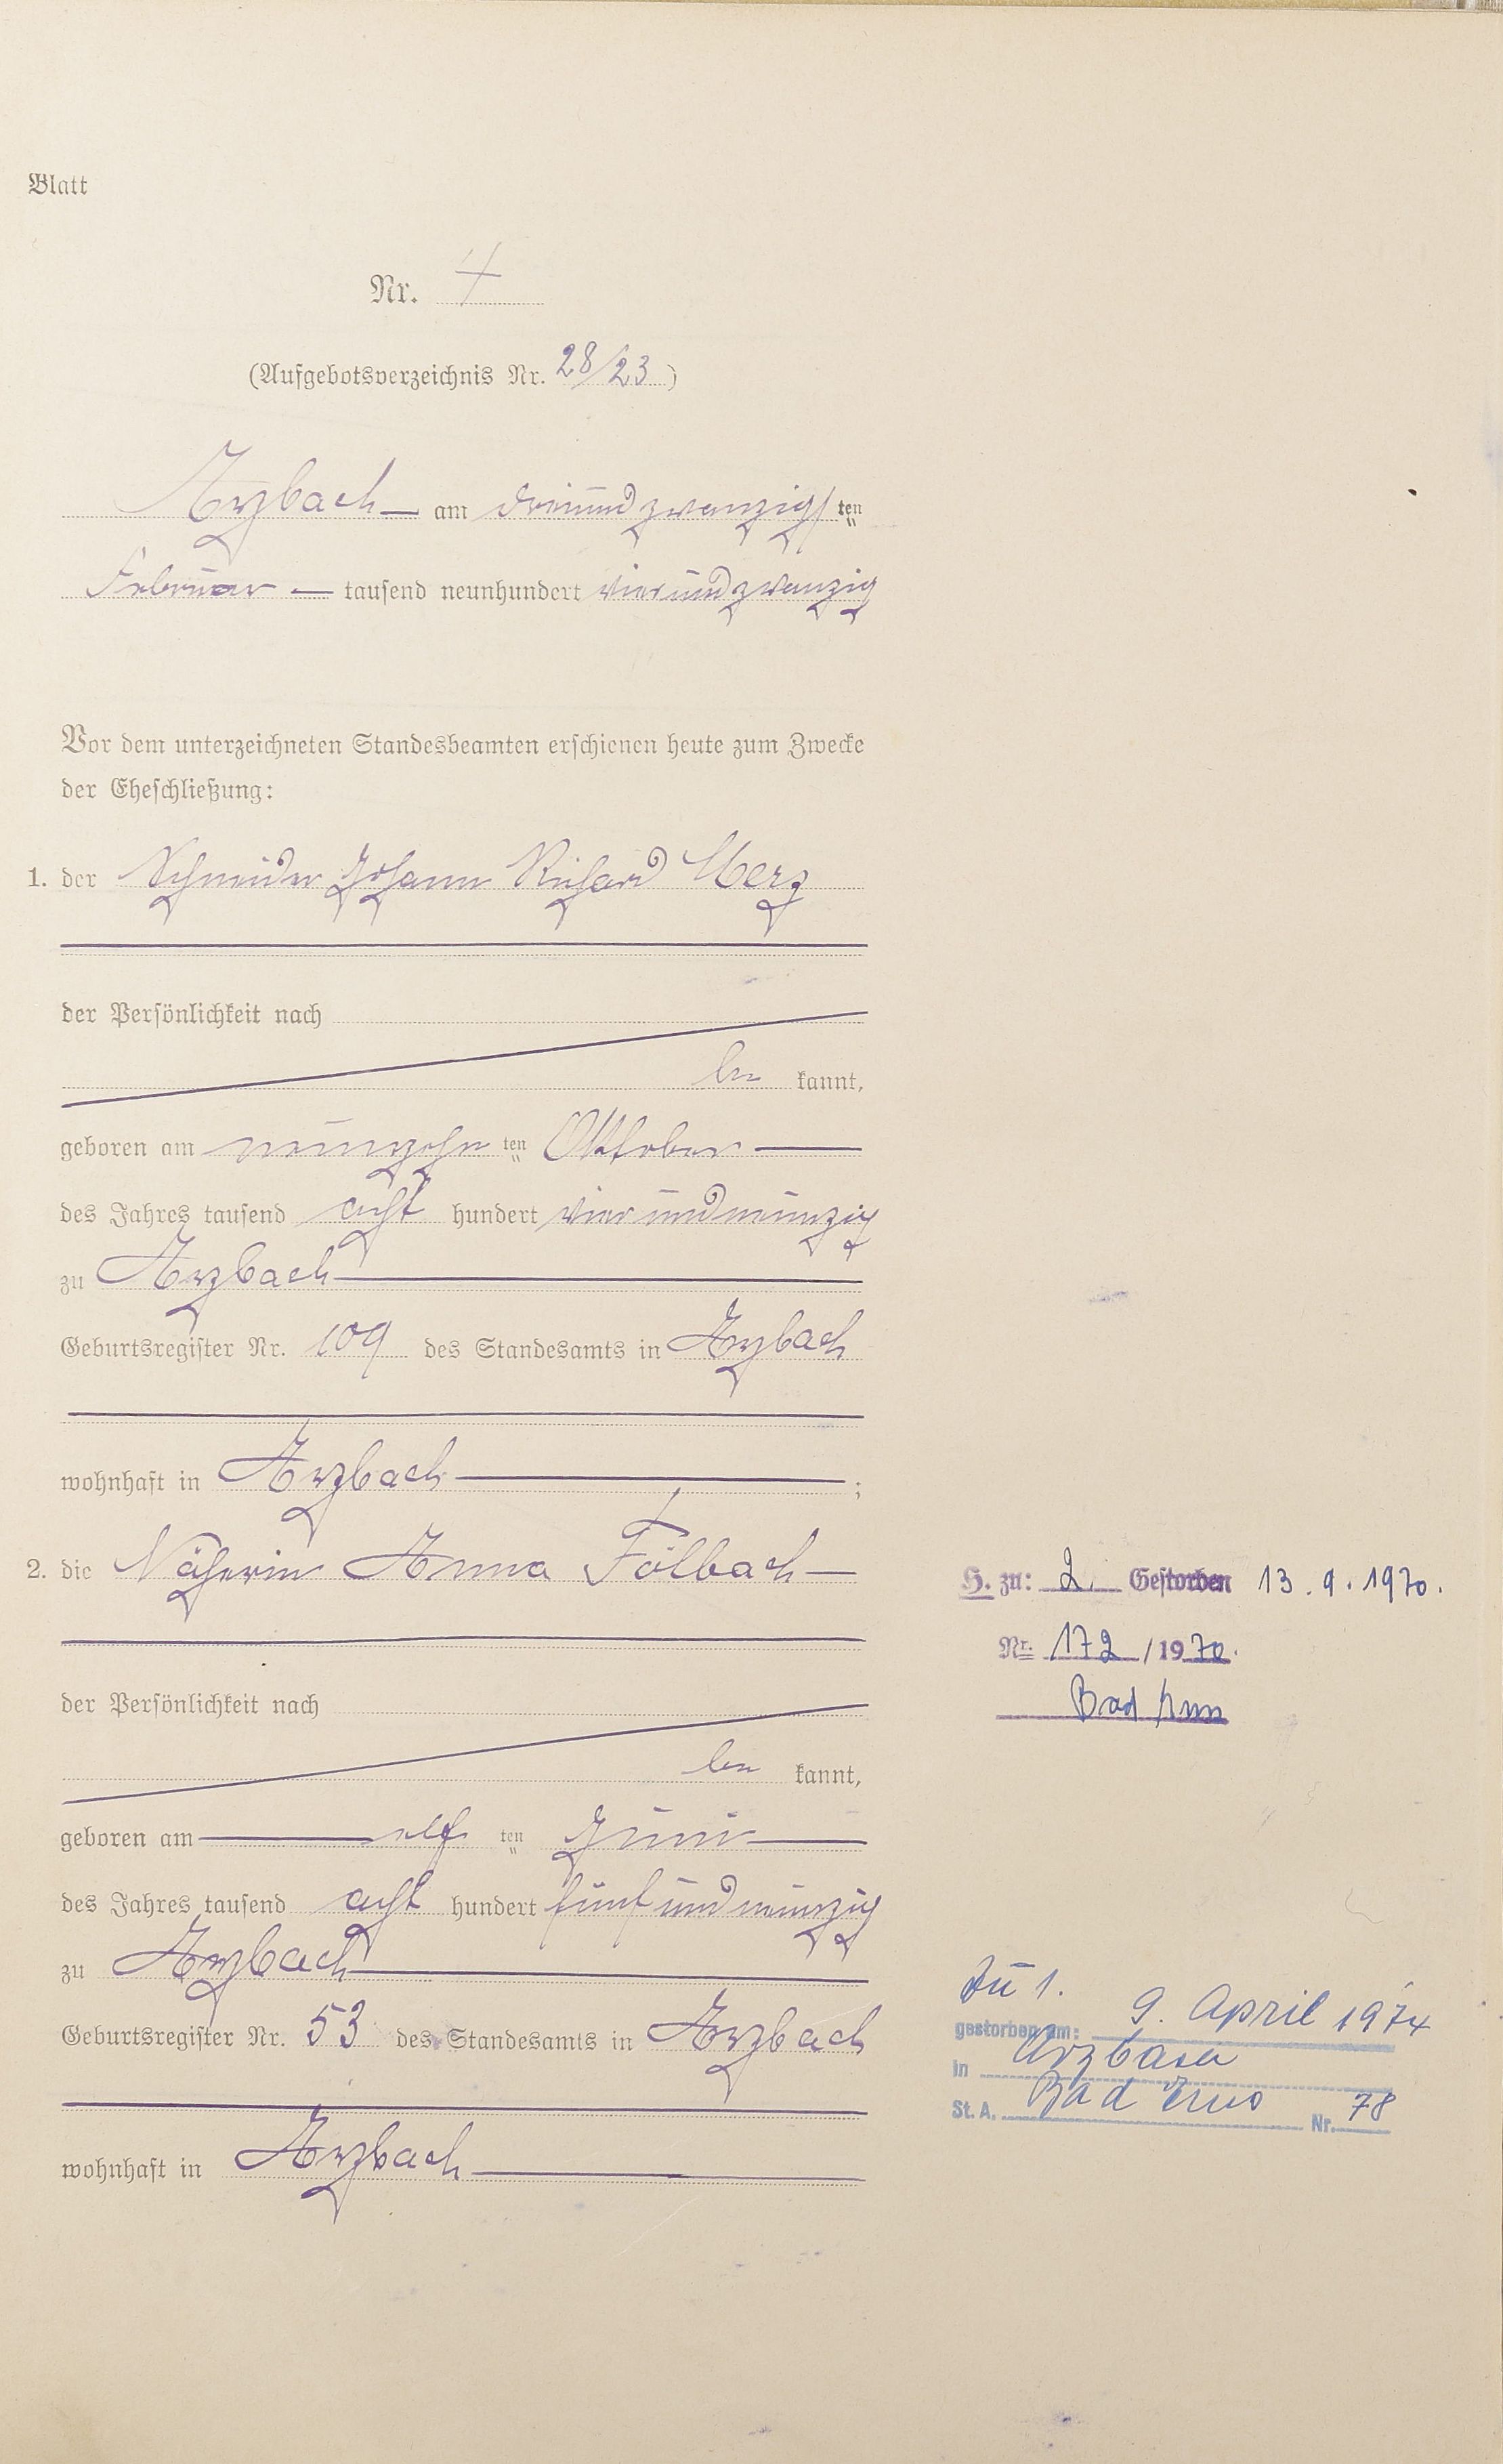 Blatt
Nr. 4
(Aufgebotsverzeichnis Nr. 28/23)
Arzbach — am dreiundzwanzigsten
Februar — tausend neunhundert vierundzwanzig
Vor dem unterzeichneten Standesbeamten erschienen heute zum Zwecke
der Eheschließung:
1. der Schneider Johann Richard Merz
der Persönlichkeit nach
be kannt,
geboren am neunzehn ten Oktober —
des Jahres tausend acht hundert vierundneunzig
zu Arzbach —
Geburtsregister Nr. 109 des Standesamts in Arzbach
wohnhaft in Arzbach — ;
2. die Näherin Anna Fölbach —
der Persönlichkeit nach
be kannt,
geboren am — elf ten Juni —
des Jahres tausend acht hundert fünfundneunzig
zu Arzbach —
Geburtsregister Nr. 53 des Standesamts in Arzbach
wohnhaft in Arzbach —
H. zu: 2. Gestorben 13.9.1970.
Nr. 172 / 1970.
Bad Ems
Zu 1.
gestorben am: 9. April 1974
in Arzbach
St. A. Bad Ems Nr. 78